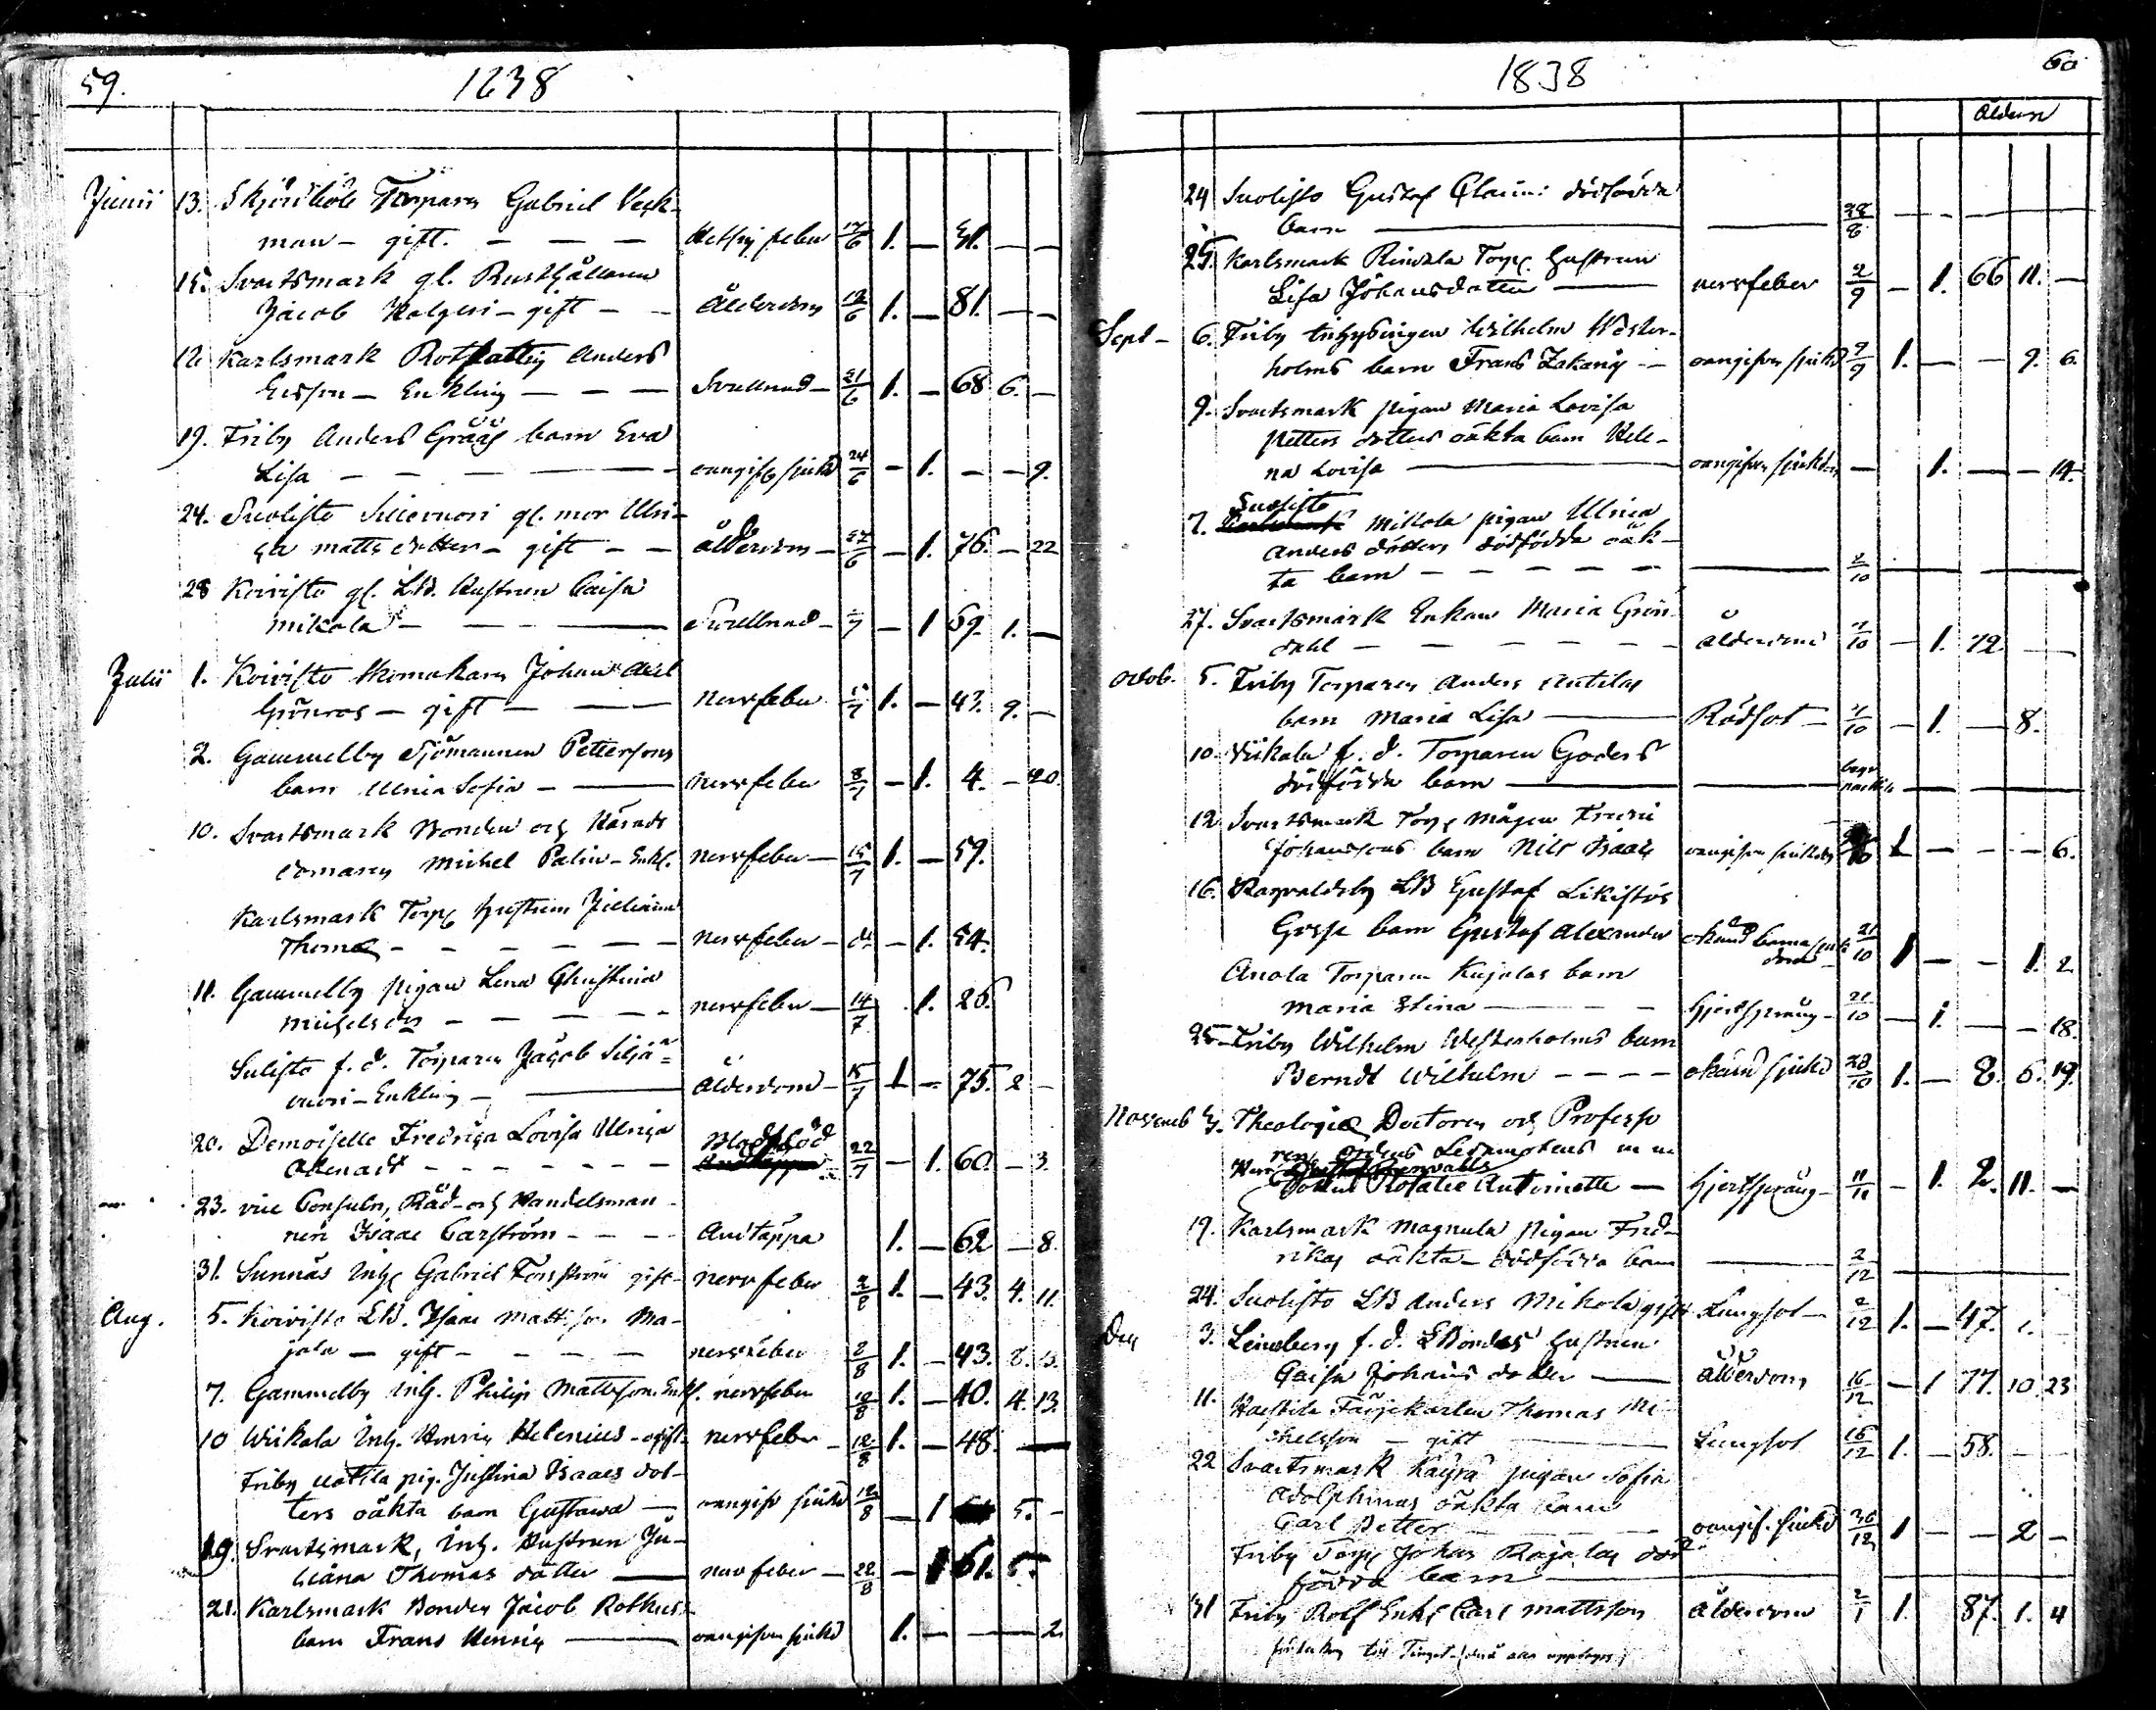 59.
1838
Junii 13. Skjördböle Torparen Gabriel Veck-
man - gift. - - - Hettsig feber 17/6 1. - 51. - -
15. Svartsmark gl. Rusthållaren
Jacob - gift - - Ålderdom 18/6 1. - 81. - -
Karlsmark Rotfattig Anders
Ersson - Enkling - - - Svullnad - 21/6 1. - 68 6. -
19. Friby Anders Grääs barn Eva
Lisa - - - - - oangifv. sjukd 24/6 - 1. - - 9.
24. Suolisto gl. mor Ulri-
ca Matts dotter - gift - - ålderdom - 27/6 - 1. 76. - 22
28 Koivisto gl. LB. Hustrun Caisa
Mikola - - - Svullnad - /7 - 1 59. 1. -
Julii 1. Koivisto Skomakaren Johan Axel
Grönroos - gift - - nervfeber /7 1. - 43. 9. -
2. Gammelby Sjömannen Pettersons
barn Ulrica Sofia - - nervfeber 8/7 - 1. 4. - 20.
10. Svartsmark Bonden och Härads
domaren Michel Palin - Enkl. nervfeber - 15/7 1. - 59.
Karlsmark Torp. hustrun Juliana
Thomas - - - - - nervfeber - d:o - 1. 54.
11. Gammelby pigan Lena Christina
Michelsdr - - - - nervfeber - 14/7 . 1. 26.
Sulisto f. d. Torparen Jacob Siljä-
vuori - Enkling - - Ålderdom - 15/7 1 - 75. 2 -
20. Demoiselle Fredrica Lovisa Ulrica
- - - - - - Blodstöd 22/7 - 1. 60. - 3.
23. vice Consuln, Råd- och Handelsman-
nen Isaac Carström - - - Andtäppa 1. - 62 - 8.
31. Sunnäs Inh. Gabriel Forsström gift - nervfeber 2/8 1. - 43. 4. 11.
Aug. 5. Koivisto LB. Isaac Mattsson Ma-
jala - gift - - - - nervfeber 8/8 1. - 43. 8. 13.
7. Gammelby inh. Philip Mattsson. Enkl. nervfeber 12/8 1. - 40. 4. 13.
10 Wiikala Inh. Henric Helenius - ogift - nervfeber - 12/8 1. - 48. -
Friby Uotila pig. Justina Isaacs dot-
ters oäkta barn Gustava - oangifv sjukd 12/8 - 1 5. -
19. Svartsmark, Inh. Hustrun Ju-
liana Thomas dotter - nervfeber - 22/8 - 1 61. 5.
21. Karlsmark Bonden Jacob Rothus-
barn Frans Henric - oangifven sjukd 1. - - - 2.
1838
60
Åldern
24 Suolisto Gustaf dödfödda
barn - - 28/8 - - -
25. Karlsmark Rinvala Torp. hustrun
Lisa Johansdotter - nervfeber 2/9 - 1. 66 11. -
Sept - 6. Friby Inhysingen Wilhelm Wester-
holms barn Frans Zakarias - - oangifven sjukd 9/9 1. - - 9. 6.
9. Svartsmark pigan Maria Lovisa
Petters dotters oäkta barn Hele-
na Lovisa - oangifven sjukdom - 1. - - 14.
Suolisto
7. Karlsmark Mikola pigan Ulrica
Anders dotters dödfödda oäk-
ta barn - - - - - - 2/10
27. Svartsmark Enkan Maria Grön-
dahl - - - - - - ålderdom 7/10 - 1. 72. - -
octob. 5. Friby Torparen Anders Anttilas
barn Maria Lisa - Rödsot - 7/10 - 1. - 8.
10. Wiikala f. d. Torparen Goders
dödfödda barn - - begr.
12 Svartsmark Torp mågen
Johanssons barn Nils Isaac oangifven sjukdom 1 - - - 6.
16. Ragvaldsby LB Gustaf Likistös
Gosse barn Gustaf Alexander okänd barnasjuk
dom - 21/10 1 - - 1. 2
Anola Torparen Kujalas barn
Maria Stina - - Hjertsprång - 21/10 - 1. - - 18.
25 - Friby Wilhelm Westerholms barn
Berndt Wilhelm - - - - okänd sjukd 28/10 1. - 8. 6. 19.
Novemb 3. Theologiæ Doctoren och Professo
rens, ordens Ledamotens m m
Herr Gustaf Renvalls
dotter Natalie Antoinette - Hjertsprång - 11/11 - 1. 2. 11. -
19. Karlsmark Magnula pigan Fred-
rikas oäkta - dödfödda barn - 2/12
24. Suolisto LB Anders Mikola gift - Lungsot - 2/12 1. - 47. 1. -
Dec 3. Leineberg f. d. LBondes hustrun
Caisa Johans dotter - ålderdom 16/12 - 1 77. 10. 23
11. Haistila Färjekarlen Thomas Mi-
chelsson - gift - Lungsot 16/12 1. - 58. - -
22 Svartsmark Käyrä pigan Sofia
Adolphinas oäkta barn
Carl Petter - - - oangif. sjukd 26/12 1 - - 2 -
Friby Torp Johan Rajalas död
födda barn -
31 Friby Rotf Enkl Carl Mattsson ålderdom 2/1 1. 87. 1. 4